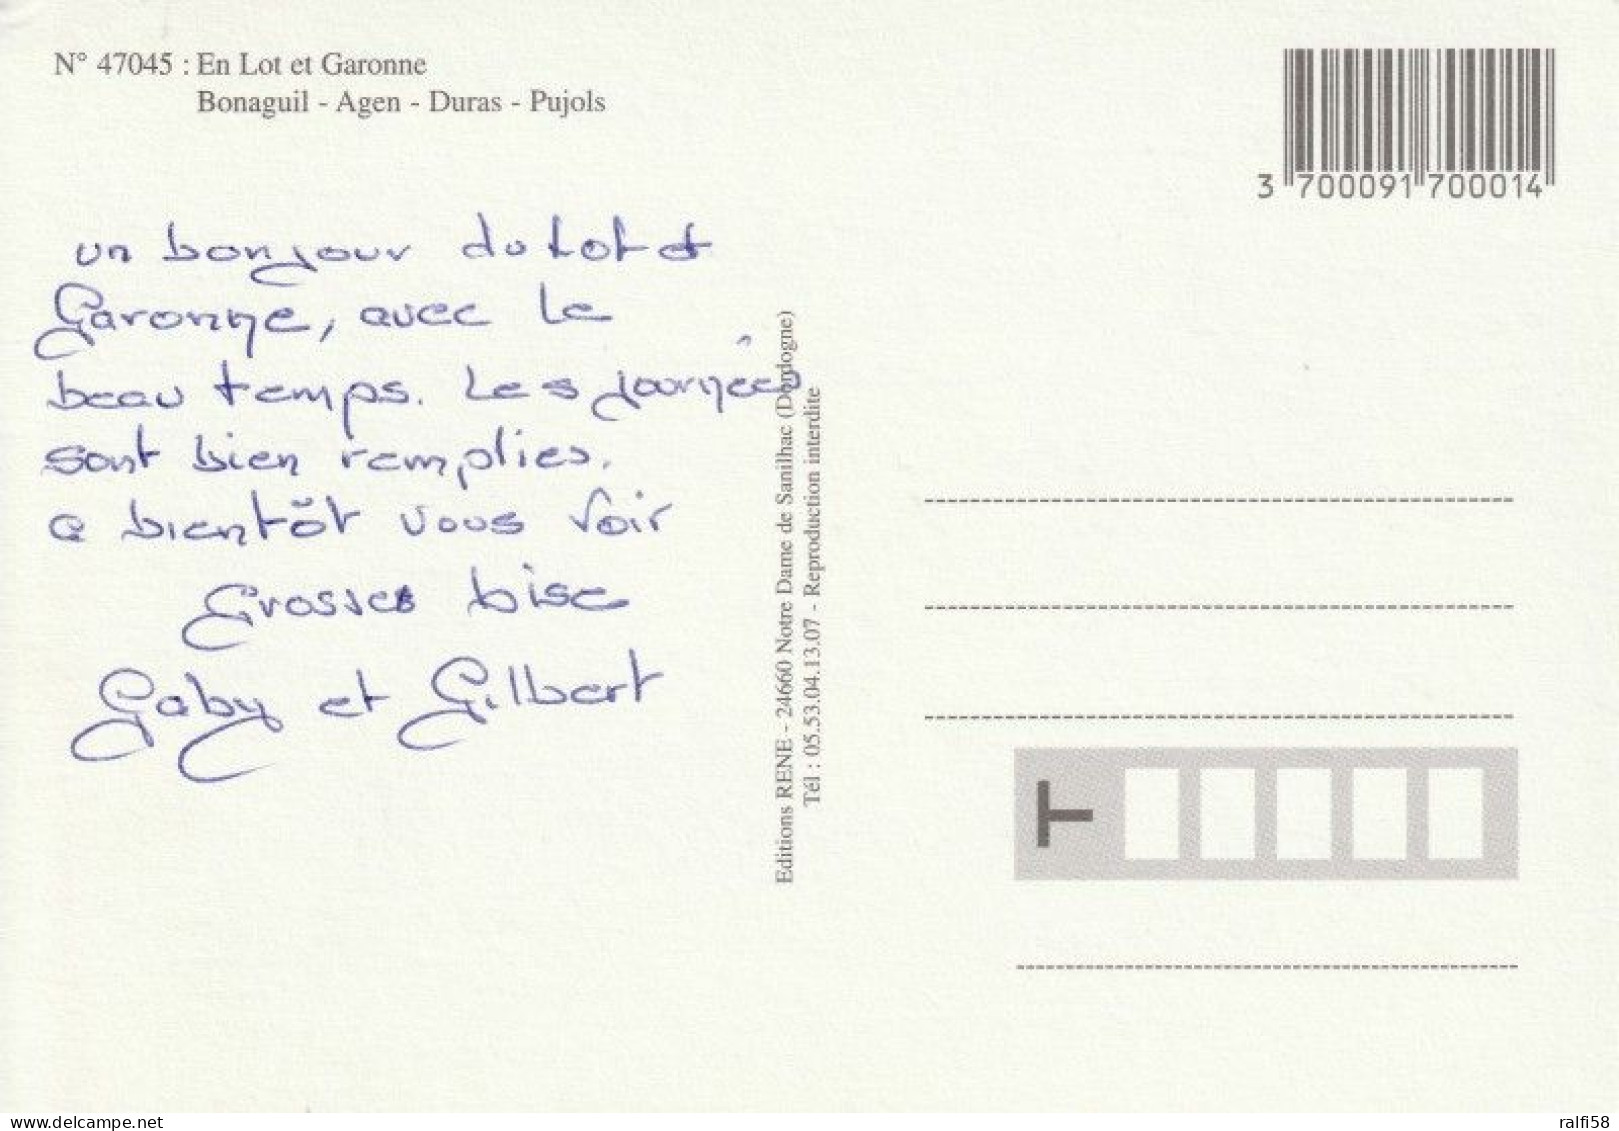 N° 47045 : En Lot et Garonne
Bonaguil - Agen - Duras - Pujols
3 700091 700014
un bonjour du Lot et
Garonne, avec le
beau temps. Les journées
sont bien remplies.
a bientôt vous voir
Grosses bise
Gaby et Gilbert
Editions RENE - 24660 Notre Dame de Sanilhac (Dordogne)
Tél : 05.53.04.13.07 - Reproduction interdite
T
delcampe.net
ralfi58